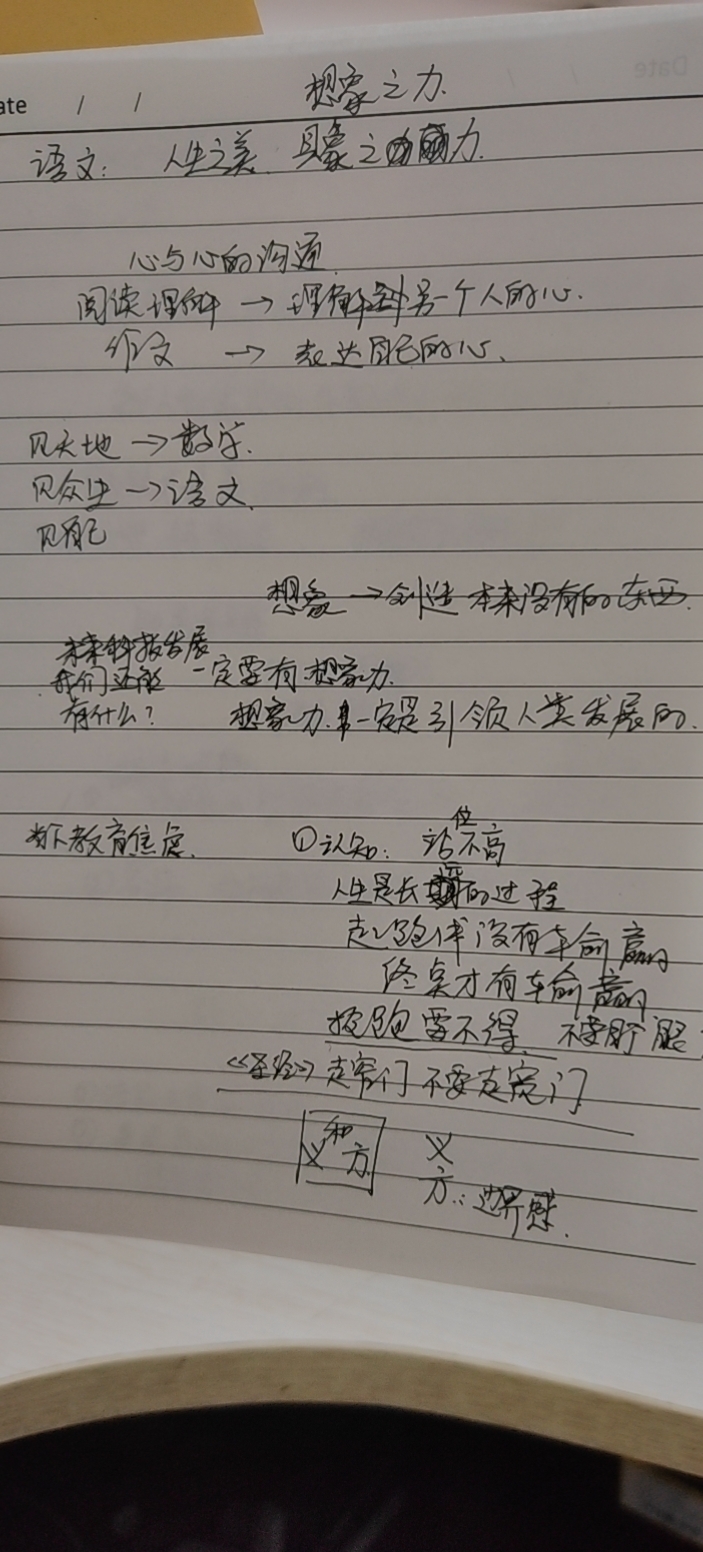 ate / /
想象之力.
语文: 人生之美. 具象之力.
心与心的沟通.
阅读理解 → 理解到另一个人的心.
作文 → 表达自己的心.
见天地 → 数学.
见众生 → 语文.
见自己
想象 → 创造 本来没有的东西.
未来科技发展
我们还能 一定要有想象力.
有什么? 想象力 一定是引领人类发展的.
当下教育焦虑. ①认知: 站位不高
人生是长期的过程
起跑线没有输赢
终点才有输赢
抢跑要不得. 不要
《圣经》走窄门 不要走宽门
和
义 方 义
方: 边界感.